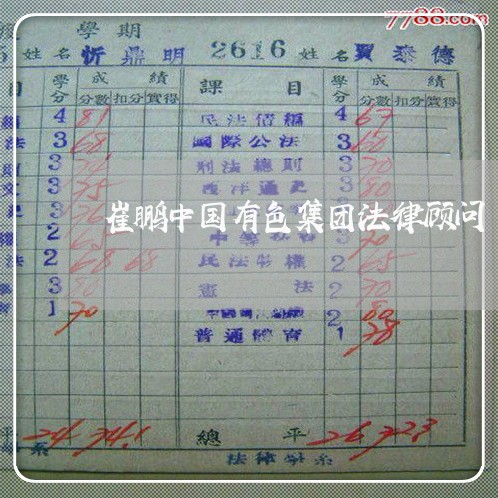 7788.com
學期
姓名 忻鼎明 2616 姓名 賈泰德
目 學分 成績 課目 學分 成績
分數 扣分 實得 分數 扣分 實得
4 81 民法債編 4 67
法 3 68 國際公法 3 60
3 刑法總則 3 70
3 75 西洋通史 3 80
崔鹏中国有色集团法律顾问
2 65 3 70
法 2 68 68 民法物權 2 65
3 80 憲法 2 70
1 70 2 80
普通體育 1 78
平 24 74.1 總平 26 72.3
系 法律學系